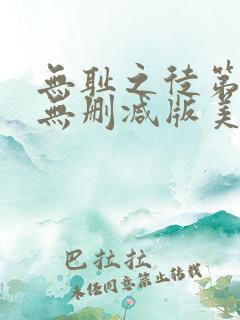 無耻之徒第
無删减版美
巴拉拉
未经同意禁止转载